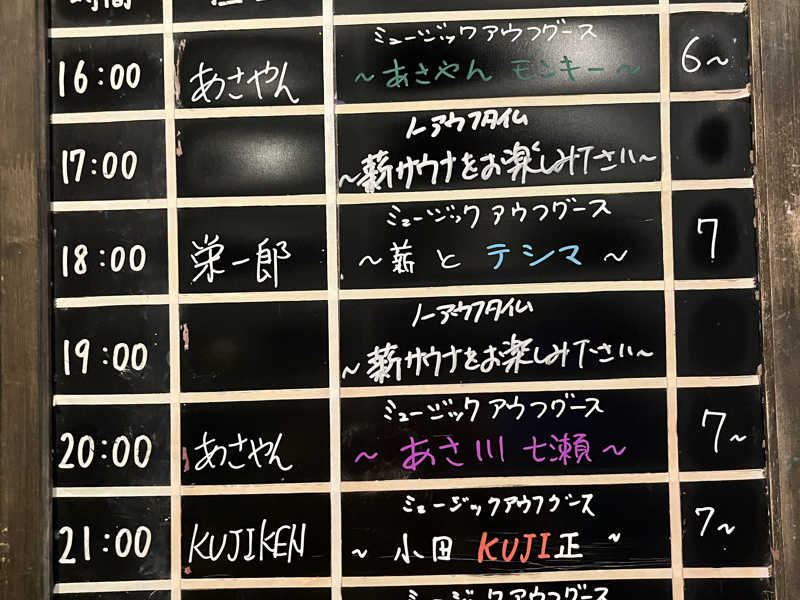 時間
16:00 あさやん ミュージックアウフグース 6~
~あさやん モンキー~
17:00 ノーアウフタイム
~薪サウナをお楽しみ下さい~
18:00 栄一郎 ミュージックアウフグース 7
~薪とテシマ~
19:00 ノーアウフタイム
~薪サウナをお楽しみ下さい~
20:00 あさやん ミュージックアウフグース 7~
~あさ川七瀬~
21:00 KUJIKEN ミュージックアウフグース 7~
~小田KUJI正~
ミュージックアウフグース